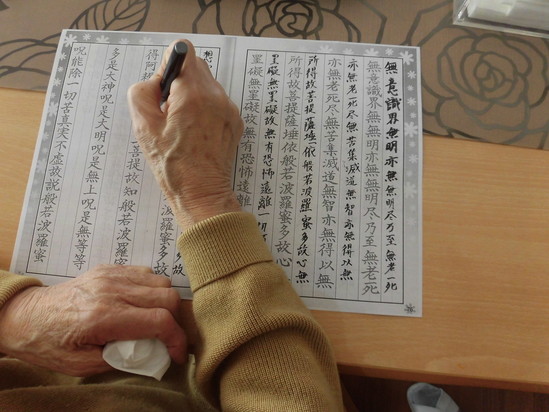 無意識界無明亦無無明尽乃至無老死
無意識界無無明亦無無明尽乃至無老死
亦無老死尽無苦集滅道無智亦無得以無
亦無老死尽無苦集滅道無智亦無得以無
所得故菩提薩埵依般若波羅蜜多故心無
所得故菩提薩埵依般若波羅蜜多故心無
罣礙無罣礙故無有恐怖遠離一切
罣礙無罣礙故無有恐怖遠離
想 多故
得阿 菩提故知般若波羅蜜
多是大神呪是大明呪是無上呪是無等等
呪能除一切苦真実不虚故説般若波羅蜜